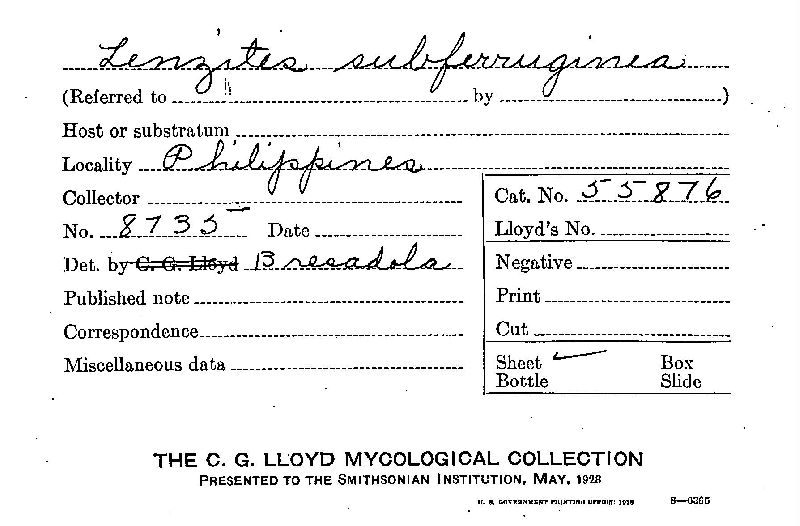 Lenzites subferruginea
(Referred to by )
Host or substratum
Locality Philippines
Collector
No. 8735 Date
Det. by C. G. Lloyd Bresadola
Published note
Correspondence
Miscellaneous data
Cat. No. 55876
Lloyd's No.
Negative
Print
Cut
Sheet ✓ Box
Bottle Slide
THE C. G. LLOYD MYCOLOGICAL COLLECTION
PRESENTED TO THE SMITHSONIAN INSTITUTION, MAY, 1928
U. S. GOVERNMENT PRINTING OFFICE: 1928